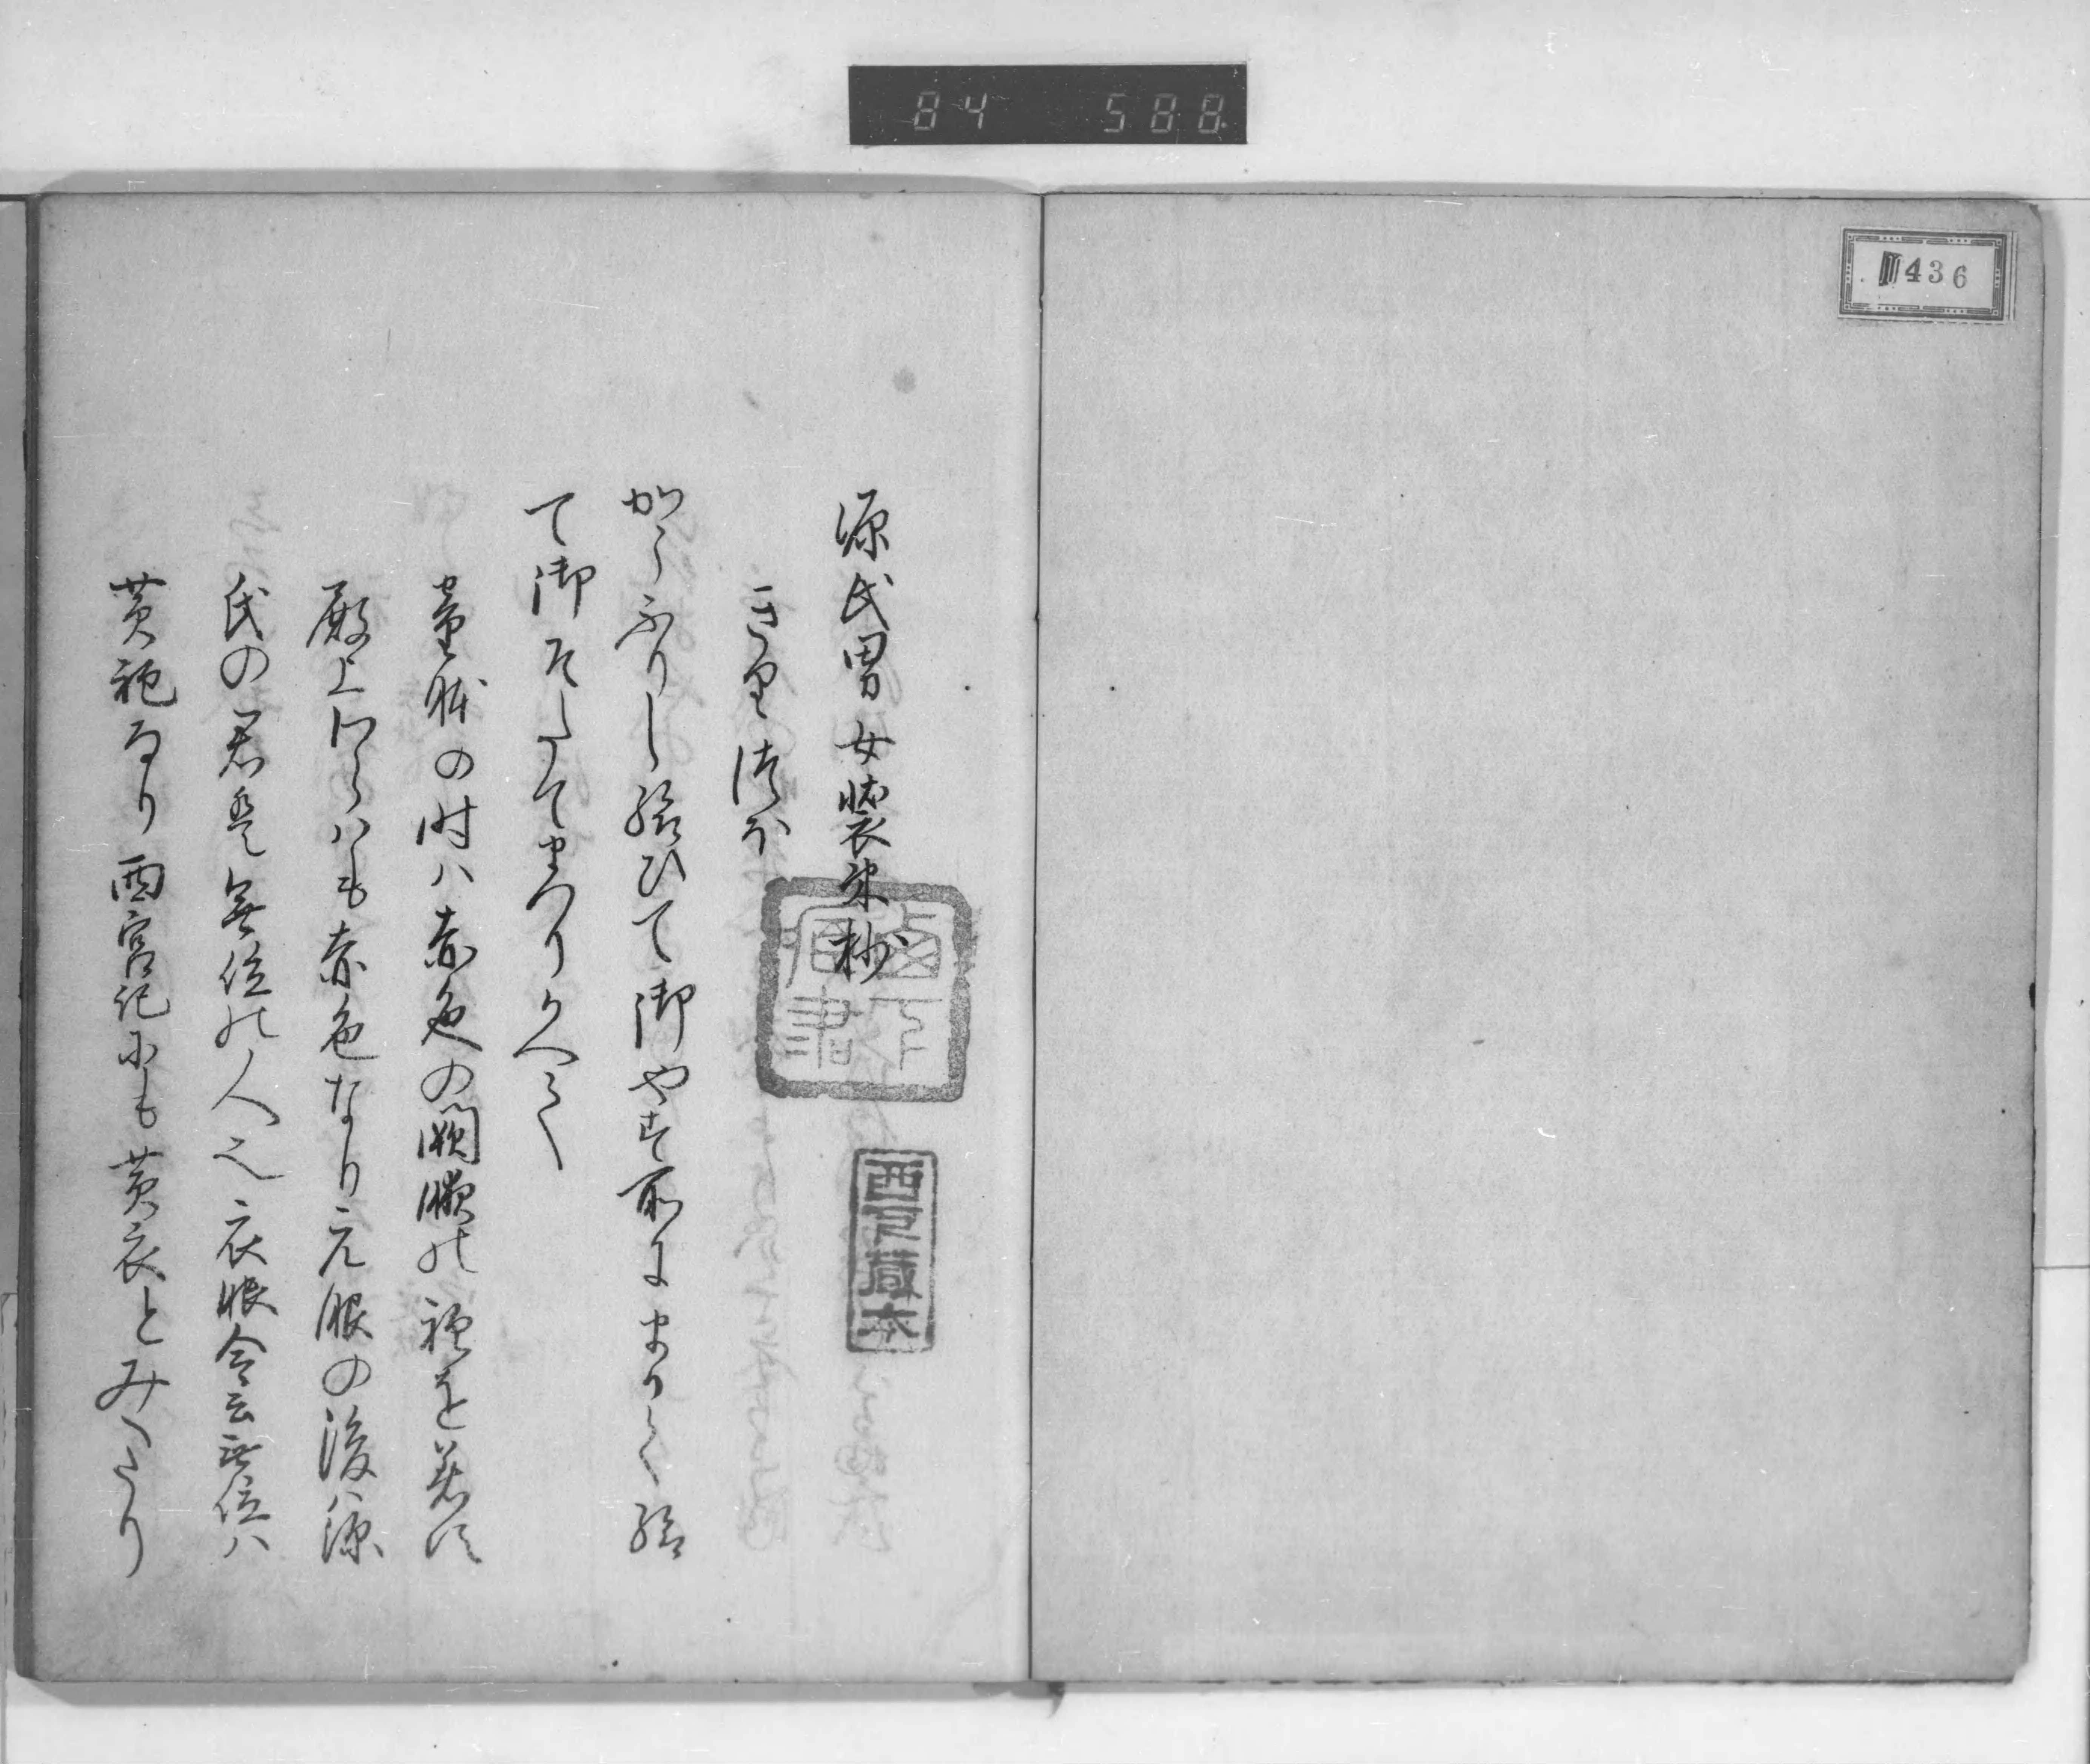 84 588
436
源氏男女装束抄
きりつほ
かうふりし給ひて御やす所にまかて給
て御そたてまつりかへて
童躰の時ハ赤色の闕腋の袍を着す
殿上わらハも赤色なり元服の後ハ源
氏の君是無位の人也衣服令云無位ハ
黄袍なり西宮記にも黄衣とみえたり
西尾蔵本